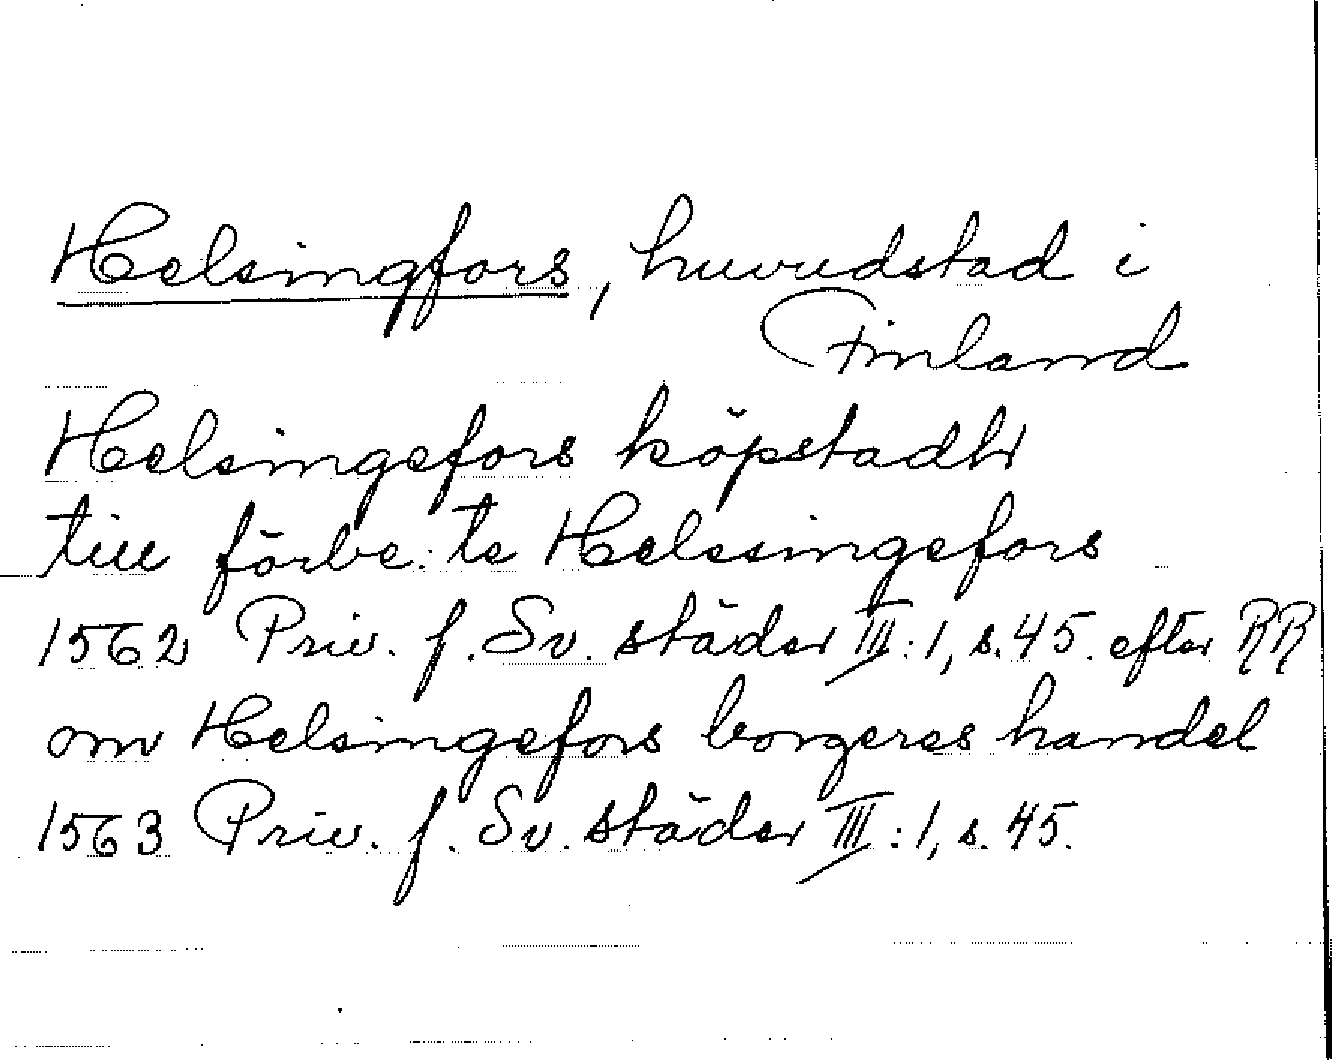 Helsingfors, huvudstad i
Finland
Helsingefors köpstadh
till förbe:te Helssingefors
1562 Priv. f. Sv. städer III:1, s. 45. efter RR
om Helsingefors borgeres handel
1563 Priv. f. Sv. städer III:1, s. 45.